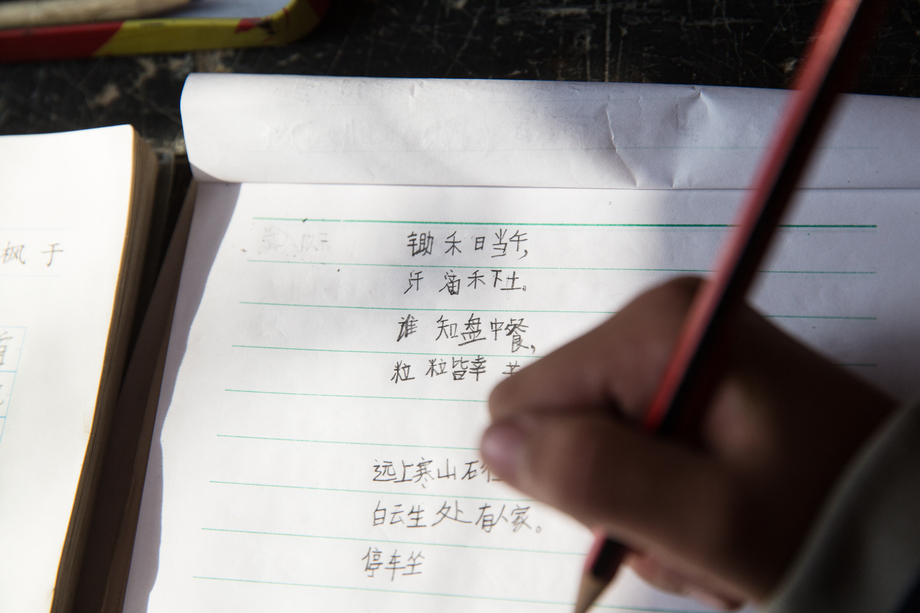 枫于
锄禾日当午，
汗滴禾下土。
谁知盘中餐，
粒粒皆幸
远上寒山石
白云生处有人家。
停车坐